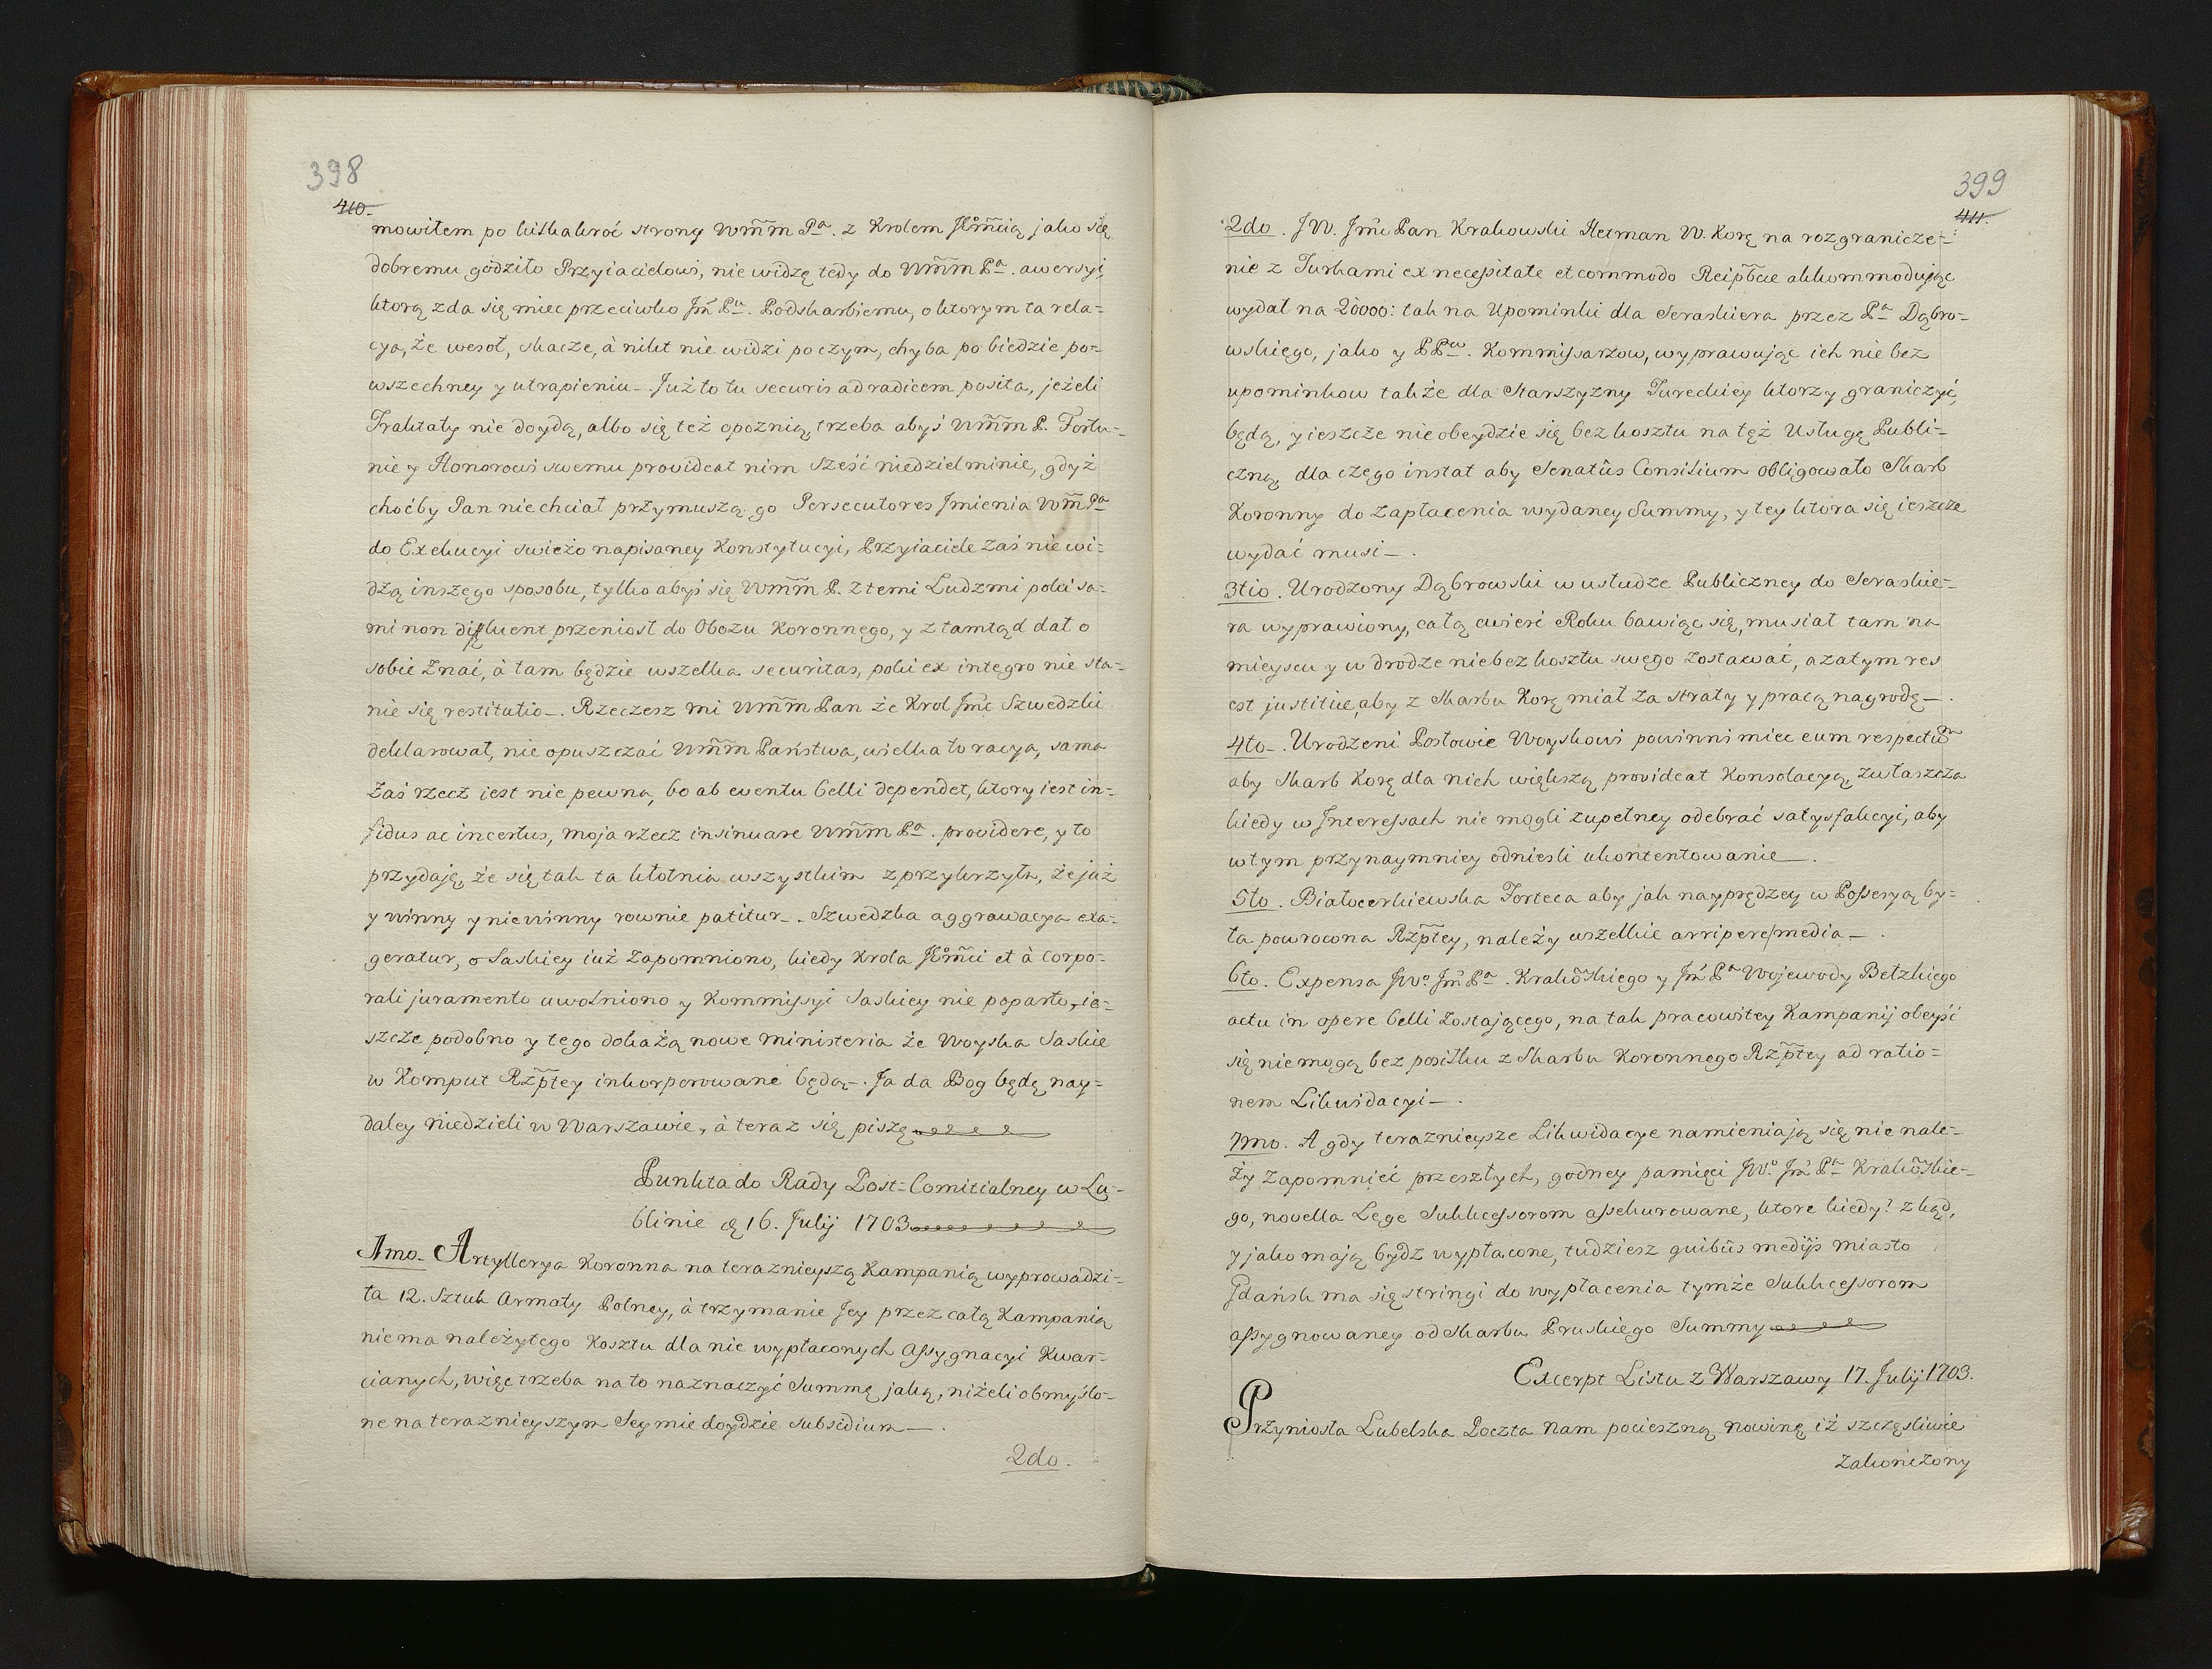 398
410.
mowiłem po kilkakroć strony Wm̃m Pa. z Krolem JKm̃cią jako się
dobremu godziło Przyiacielowi, nie widzę tedy do Wm̃m Pa. awersyi,
ktorą zda się miec przeciwko Jm̃ Pu. Podskarbiemu, o ktorym ta rela=
cya, że wesoł, skacze, à nikt nie widzi po czym, chyba po biedzie po=
wszechney y utrapieniu. Już to tu securis ad radicem posita, jeżeli
Traktaty nie doydą, albo się też opoznią, trzeba abyś Wm̃m P. Fortu=
nie y Honorowi swemu provideat nim sześć niedziel minie, gdyż
choćby Pan niechciał przymuszą go Persecutores Jmienia Wm̃ Pa
do Exekucyi swieżo napisaney Konstytucyi, Przyiaciele zaś nie wi=
dzą inszego sposobu, tylko abyś się Wm̃m P. z temi Ludzmi poki sa=
mi non diffluent przeniosł do Obozu Koronnego, y z tamtąd dał o
sobie znać, à tam będzie wszelka securitas, poki ex integro nie sta=
nie się restitutio. Rzeczesz mi Wm̃m Pan że Krol Jm̃c Szwedzki
deklarował, nie opuszczać Wm̃m Państwa, wielka to racya, sama
zaś rzecz iest nie pewna, bo ab eventu belli dependet, ktory iest in=
fidus ac incertus, moja rzecz insinuare Wm̃m Pa. providere, y to
przydaję, że się tak ta kłotnia wszystkim zprzykrzyła, że już
y winny y niewinny rownie patitur. Szwedzka aggrawacya exa=
geratur, o Saskiey iuż zapomniono, kiedy Krola JKm̃ci et à corpo=
rali juramento uwolniono y Kommissyi Saskiey nie poparto, ie=
szcze podobno y tego dokażą nowe ministeria że Woyska Saskie
w Komput Rzp̃tey inkorporowane będą. Ja da Bog będę nay=
daley niedzieli w Warszawie, à teraz się piszę
Punkta do Rady Post-Comitialney w Lu-
blinie d. 16. Julij 1703
1mo. Artyllerya Koronna na teraznieyszą Kampanią wyprowadzi-
ła 12. Sztuk Armaty Polney, à trzymanie Jey przez całą Kampanią
niema należytego Kosztu dla nie wypłaconych Assygnacyi Kwar-
cianych, więc trzeba na to naznaczyć Summę jaką, niżeli obmyślo-
ne na teraznieyszym Seymie doydzie subsidium.
2do.
399
411.
2do. JW. Jm̃c Pan Krakowski Hetman W. Korę na rozgranicze=
nie z Turkami ex necessitate et commodo Reip̃bcae akkommodując
wydał na 20000: tak na Upominki dla Seraskiera przez Pa Dąbro=
wskiego, jako y PPow. Kommissarzow, wyprawując ich nie bez
upominkow także dla Starszyzny Tureckiey ktorzy graniczyć,
będą, y ieszcze nieobeydzie się bez kosztu na tęż Usługę Publi=
czną, dla czego instat aby Senatûs Consilium obligowało Skarb
Koronny do zapłacenia wydaney Summy, y tey ktora się ieszcze
wydać musi.
3tio. Urodzony Dąbrowski w usłudze Publiczney do Seraskie=
ra wyprawiony, całą cwierć Roku bawiąc się, musiał tam na
mieyscu y w drodze niebez kosztu swego zostawać, a zatym res
est justitiae, aby z Skarbu Korę miał za straty y pracą nagrodę.
4to. Urodzeni Posłowie Woyskowi powinni miec eum respectum
aby Skarb Korę dla nich większą provideat Konsolacyą, zwłaszcza
kiedy w Interessach nie mogli zupełney odebrać satysfakcyi, aby
w tym przynaymniey odniesli ukontentowanie.
5to. Białocerkiewska Forteca aby jak nayprędzey w Possesyą by=
ła powrocona Rzp̃tey, należy wszelkie arripere media.
6to. Expensa JWo Jm̃ Pa. Krakõskiego y Jm̃ Pa Wojewody Bełzkiego
actu in opere belli zostającego, na tak pracowitey Kampanij obeyść
się niemogą bez posiłku z Skarbu Koronnego Rzp̃tey ad ratio=
nem Likwidacyi.
7mo. A gdy teraznieysze Likwidacye namieniają się nie nale=
ży zapomnieć przeszłych, godney pamięci JWo. Jm̃ Pa Krakõskie=
go, novella Lege Sukcessorom assekurowane, ktore kiedy? zkąd,
y jako mają bydz wypłacone, tudziesz quibûs medijs miasto
Gdańsk ma się stringi do wypłacenia tymże Sukcessorom
assygnowaney od Skarbu Pruskiego Summy
Excerpt Listu z Warszawy 17. Julij 1703.
Przyniosła Lubelska Poczta nam pocieszną nowinę iż szczęsliwie
zakończony